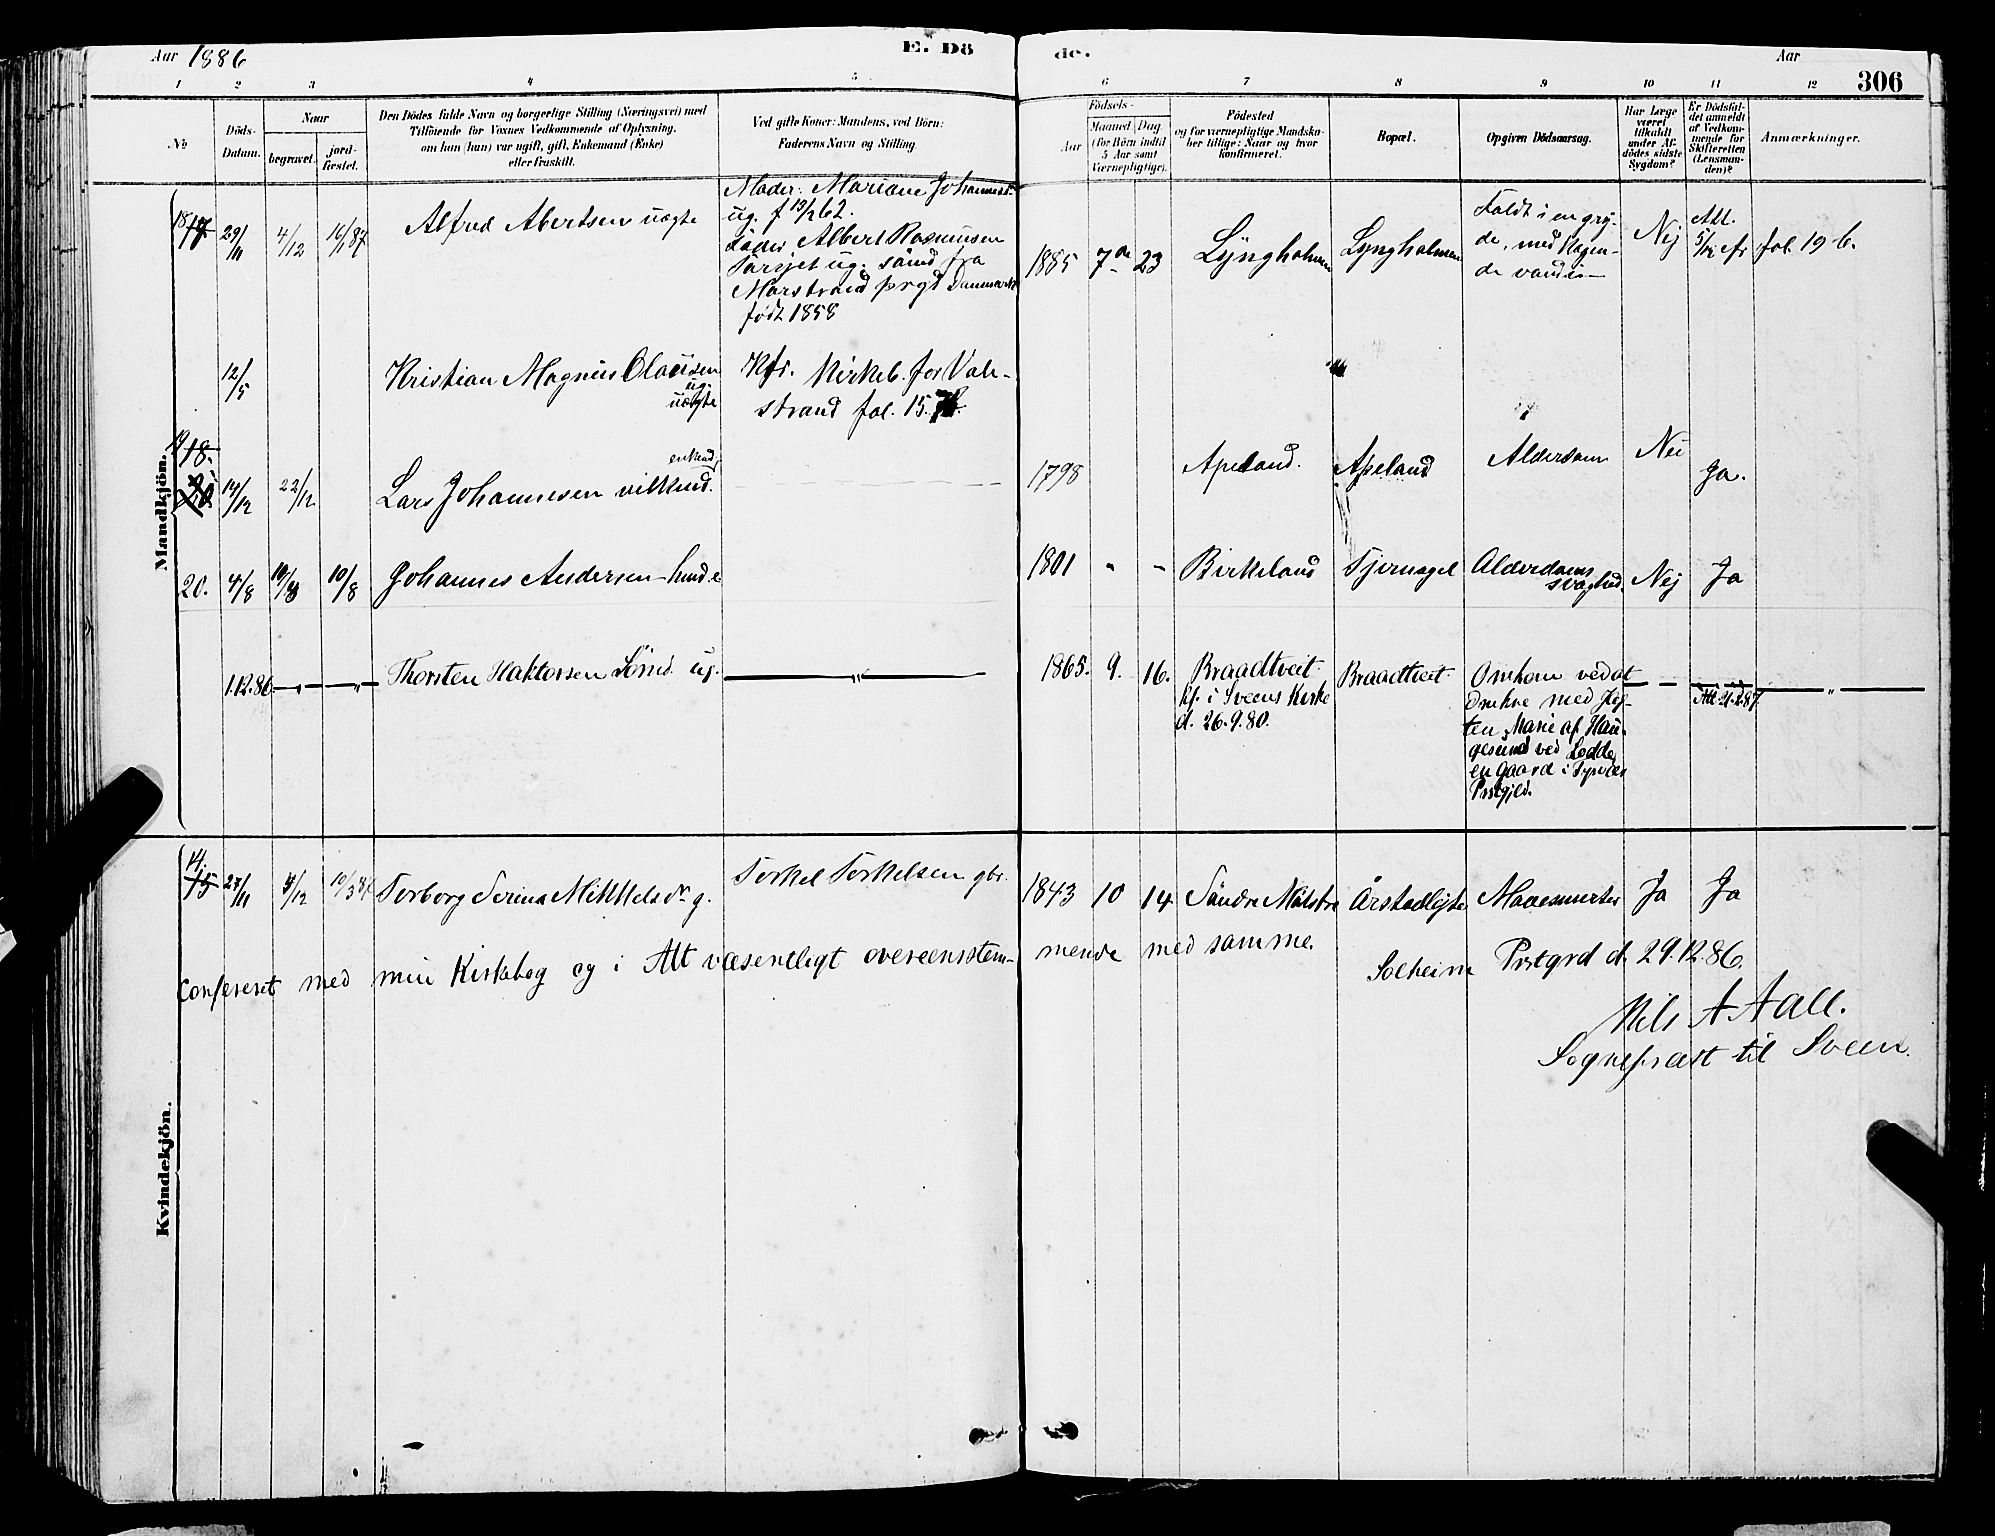 Aar 1886
E. Dö
de.
Aar
306
1 2 3 4 5 6 7 8 9 10 11 12
No
Döds-
Datum.
Naar
begravet.
jord-
fæstet.
Den Dödes fulde Navn og borgerlige Stilling (Næringsvei) med
Tilföiende for Voxnes Vedkommende af Oplysning,
om han (hun) var ugift, gift, Enkemand (Enke)
eller fraskilt.
Ved gifte Koner: Mandens, ved Börn:
Faderens Navn og Stilling.
Födsels-
Aar
Maaned
Dag
(for Börn indtil
5 Aar samt
Værnepligtige).
Födested
og for værnepligtige Mandska-
ber tillige: Naar og hvor
konfirmeret.
Bopæl.
Opgiven Dödsaarsag.
Har Læge
været
tilkaldt
under Af-
dödes sidste
Sygdom?
Er Dödsfal-
det anmeldt
af Vedkom-
mende for
Skifteretten
(Lensman-
den)?
Anmærkninger.
Mandkjön.
18 17 29/11 4/12 16/1 87 Alfred Abertsen uægte
Moder: Mariane Johannesd.
ug. f 13/2 62.
Fader Albert Rasmussen
Tarjet ug. sømd fra
Marstrand prgd Danmark
født 1858
1885 7de 23 Lyngholmen Lyngholmen
Faldt i en gry-
de, med kogen-
de vand i
Nej
Att.
5/12 cfr fol. 19 b.
12/5 Kristian Magnus Olausen
ug.
uægte
Kfr. Kirkeb. for Vale-
strand fol. 15.
19 18.
20 14/12 22/12 Lars Johannesen vilkmd.
enkemd.
1798 Apeland. Apeland Alderdom Nei Ja.
20. 4/8 10/8 10/8 Johannes Andersen
1801 " - Birkeland Tjernagel Alderdoms
svaghed. Nej Ja
1.12.86 Thorsten Haktorsen Sömd. ug.
1865. 9. 16. Braadtveit.
kf. i Sveens Kirke
d. 26.9.80.
Braadtveit.
Omkom ved at
drukne med Jeg-
ten „Marie af Hau-
gesund ved Lodde
en Gaard i Tysvær
Prstgjeld.
Att. 21.2.87.
Kvindekjön.
14.
15 27/11 4/12 10/3 87 Torborg Serina Mikkelsdr g.
Torkel Torkelsen gbr.
1843 10 14. Søndre Årstadlejte Mavesmerter Ja Ja
Confereret med min Kirkebog og i Alt væsentligt overeensstem-
mende med samme.
Solheim Prstgrd d. 29.12.86.
Nils A Aall.
Sognepræst til Sveen.